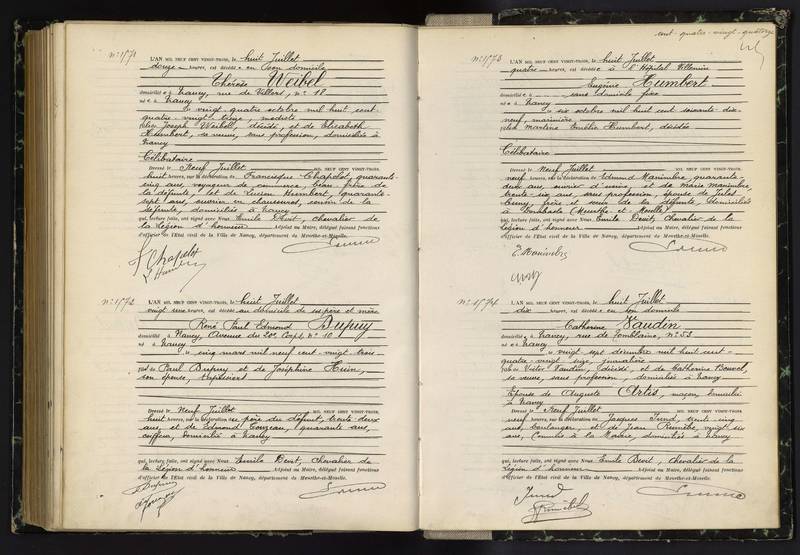 cent-quatre-vingt-quatorze
N° 1571
L'AN MIL NEUF CENT VINGT-TROIS, le huit Juillet
douze heures, est décédée en son domicile
Thérèse Weibel
domiciliée à Nancy, rue de Villers, n° 18
née à Nancy
le vingt quatre octobre mil huit cent
quatre-vingt, modiste
fille Joseph Weibel, décédé, et de Elisabeth
Humbert, sa veuve, sans profession, domiciliée à
Nancy
Célibataire
Dressé le Neuf Juillet MIL NEUF CENT VINGT-TROIS,
huit heures, sur la déclaration de Francisque Chapelot, quarante-
cinq ans, voyageur de commerce, beau-frère de
la défunte, et de Lucien Humbert, quarante-
sept ans, ouvrier en chaussures, cousin de la
défunte, domiciliés à Nancy
qui, lecture faite, ont signé avec Nous Emile Devit, chevalier de
la Légion d'honneur Adjoint au Maire, délégué faisant fonctions
d'officier de l'Etat civil de la Ville de Nancy, département de Meurthe-et-Moselle.
Chapelot
L Humbert
N° 1572
L'AN MIL NEUF CENT VINGT-TROIS, le huit Juillet
vingt une heures, est décédé au domicile de ses père et mère
René Paul Edmond Dupuy
domicilié à Nancy, Avenue du 20e Corps, n° 10
né à Nancy
le cinq mars mil neuf cent vingt-trois
fils de Paul Dupuy et de Joséphine
son épouse,
Dressé le Neuf Juillet MIL NEUF CENT VINGT-TROIS,
huit heures, sur la déclaration du père du défunt, trente deux
ans, et de Edmond, quarante ans,
coiffeur, domicilié à Nancy
qui, lecture faite, ont signé avec Nous Emile Devit, chevalier de
la Légion d'honneur Adjoint au Maire, délégué faisant fonctions
d'officier de l'Etat civil de la Ville de Nancy, département de Meurthe-et-Moselle.
Dupuy
N° 1573
L'AN MIL NEUF CENT VINGT-TROIS, le huit Juillet
quatre heures, est décédée à l'Hôpital Villemin
Eugénie Humbert
domiciliée à sans domicile fixe
née à Nancy
le six octobre mil huit cent soixante dix-
neuf,
fille Martine Emélie Humbert, décédée
Célibataire
Dressé le Neuf Juillet MIL NEUF CENT VINGT-TROIS,
neuf heures, sur la déclaration de Edmond Manimbre, quarante-
deux ans, ouvrier d'usine, et de Marie Manimbre,
trente six ans, sans profession, épouse de
frère et sœur de la défunte, domiciliés
à Dombasle (Meurthe et Moselle)
qui, lecture faite, ont signé avec Nous Emile Devit, Chevalier de la
Légion d'honneur Adjoint au Maire, délégué faisant fonctions
d'officier de l'Etat civil de la Ville de Nancy, département de Meurthe-et-Moselle.
E. Manimbre
N° 1574
L'AN MIL NEUF CENT VINGT-TROIS, le huit Juillet
dix heures, est décédée en son domicile
Catherine Vaudin
domiciliée à Nancy, rue de Tomblaine, n° 53
née à Nancy
le vingt-sept décembre mil huit cent
quatre-vingt-
fille de Victor Vaudin, décédé, et de Catherine
sa veuve, sans profession, domiciliée à Nancy
Epouse de Auguste Artis, maçon, domicilié
à Nancy
Dressé le Neuf Juillet MIL NEUF CENT VINGT-TROIS,
neuf heures, sur la déclaration de Jacques Jund, trente-cinq
ans, boulanger, et de Jean, vingt six
ans, Commis à la Mairie, domiciliés à Nancy
qui, lecture faite, ont signé avec Nous Emile Devit, chevalier de la
Légion d'honneur Adjoint au Maire, délégué faisant fonctions
d'officier de l'Etat civil de la Ville de Nancy, département de Meurthe-et-Moselle.
Jund